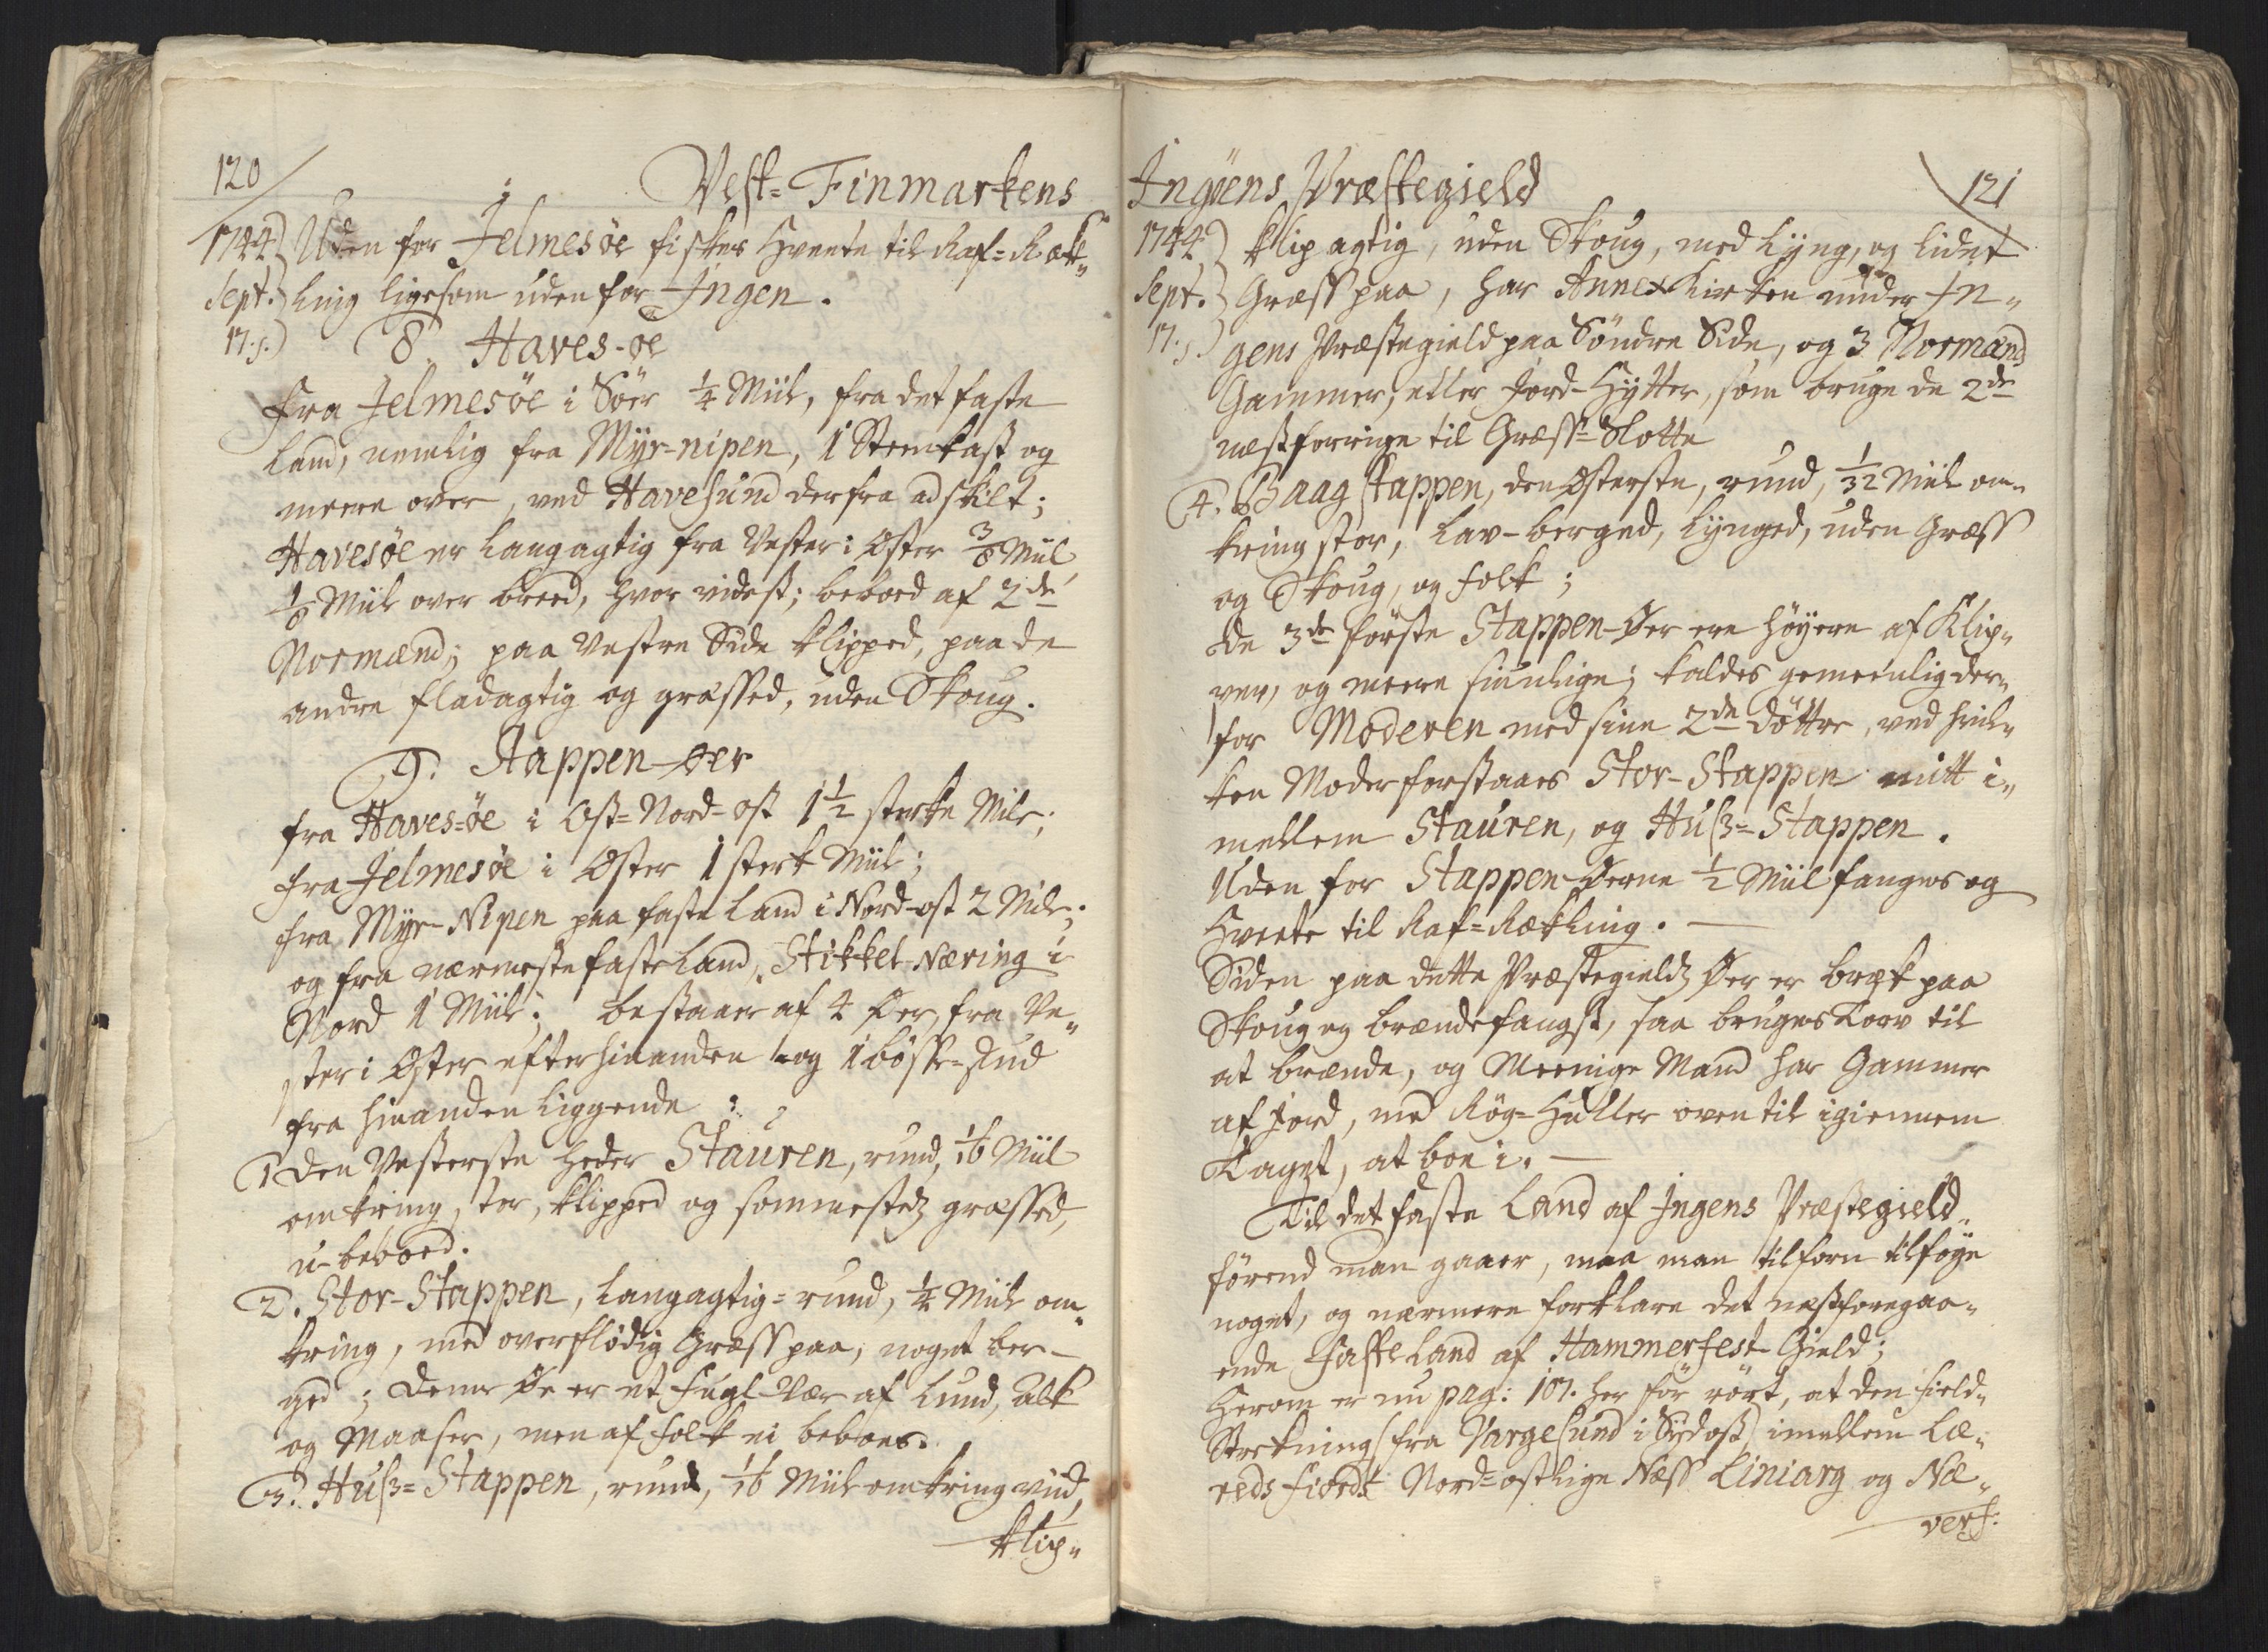 120
Vest-Finmarkens
1744 Uden for Jelmesöe fiskes Hveete til Raf-Ræk-
Sept. ling ligesom uden for Ingen.
17. s.) 8. Haves-öe
fra Jelmesöe i Söer 1/4 Miil, fra det faste
Land, nemlig fra Myr-nipen, 1 Steenkast og
meere over, ved Havesund derfra adskilt;
Havesöe er langagtig fra Vester i Öster 3/8 Miil
1/8 Miil over breed, hvor videst; beboed af 2de
Normænd; paa Vestre Side klipped, paa de
andre fladagtig og græssed, uden Skoug.
9. Stappen-öer
fra Haves-öe i Ost-Nord-ost 1 1/2 sterke Mile;
fra Jelmesöe i Öster 1 sterk Miil;
fra Myr-Nipen paa faste Land i Nord-ost 2 Mile;
og fra nærmeste faste Land, Stikkel-Næring i
Nord 1 Miil; bestaaer af 4 Öer, fra Ve-
ster i Öster efter hinanden og 1 bösse-skud
fra hinanden liggende:
1 Den Vesterste heder Stauren, rund, 1/16 Miil
omkring, stor, klipped og sommestedz græssed,
u-beboed.
2. Stor-Stappen, langagtig-rund, 1/4 Miil om-
kring, med overflödig Græss paa, noget ber-
ged; denne Öe er et Fugl-Vær af Lund, Alk
og Maaser, men af Folk ei beboes.
3. Huss-Stappen, rund, 1/16 Miil omkring viid,
klip-
Ingöens Præstegield
121
1744 klip agtig, uden Skoug, med Lyng, og lidet
Sept. Græss paa, har Annex Kirken under In-
17. s.) gens Præstegield paa Söndre Side, og 3 Normænd
Gammer, eller Jord-Hytter, som bruge de 2de
næstforrige til Græss-Slotte
4. Baagstappen, den Österste, rund, 1/32 Miil om-
kring stor, lav-berged, lynged, uden Græss
og Skoug, og Folk;
De 3de förste Stappen-Öer ere höyere af Klip-
per, og meere siunlige; kaldes gemeenlig der-
for Moderen med sine 2de Döttre, ved hvil-
ken Moder forstaaes Stor-Stappen mitt i-
mellem Stauren, og Huss-Stappen.
Uden for Stappen-Öerne 1/2 Miil fanges og
Hveete til Raf-Rækling.
Siden paa dette Præstegieldz Öer er bræk paa
Skoug og brændefangst, saa bruges Torv til
at brænde, og Meenige Mand har Gammer
af Jord, med Rög-Huller oventil igiennem
Taget, at boe i.
Til det faste Land af Ingens Præstegield
förend man gaaer, maa man tilforn tilföye
noget, og nærmere forklare det næstforegaa-
ende Faste Land af Hammerfest-Gield;
Herom er nu pag: 107. her för rört, at den Field-
Strekning (fra Vargesund i Sydost) imellem Læ-
reds Fiords Nord-ostlige Næss Liniarg og Næ-
verf: